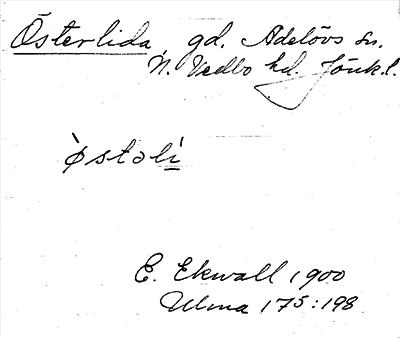 Österlida, gd. Adelövs sn.
N. Vedbo hd. Jönk. l.
ø̀stəlì
E. Ekwall 1900
Ulma 175:198